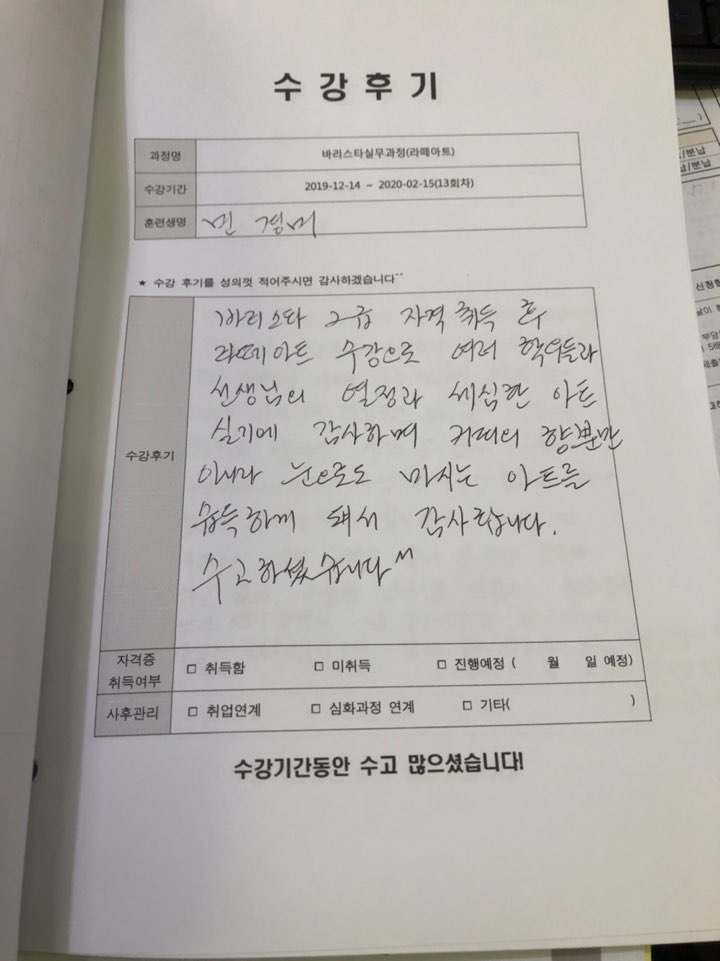 수강후기
과정명 바리스타실무과정(라떼아트)
수강기간 2019-12-14 ~ 2020-02-15(13회차)
훈련생명 민 경미
★ 수강 후기를 성의껏 적어주시면 감사하겠습니다^^
바리스타 2급 자격 취득 후
라떼아트 수강으로 여러 학우들과
선생님의 열정과 세심한 아트
실기에 감사하며 커피의 향뿐만
수강후기
아니라 눈으로도 마시는 아트를
습득하게 돼서 감사합니다.
수고하셨습니다^^
자격증 취득여부 □ 취득함 □ 미취득 □ 진행예정 ( 월 일 예정)
사후관리 □ 취업연계 □ 심화과정 연계 □ 기타( )
수강기간동안 수고 많으셨습니다!